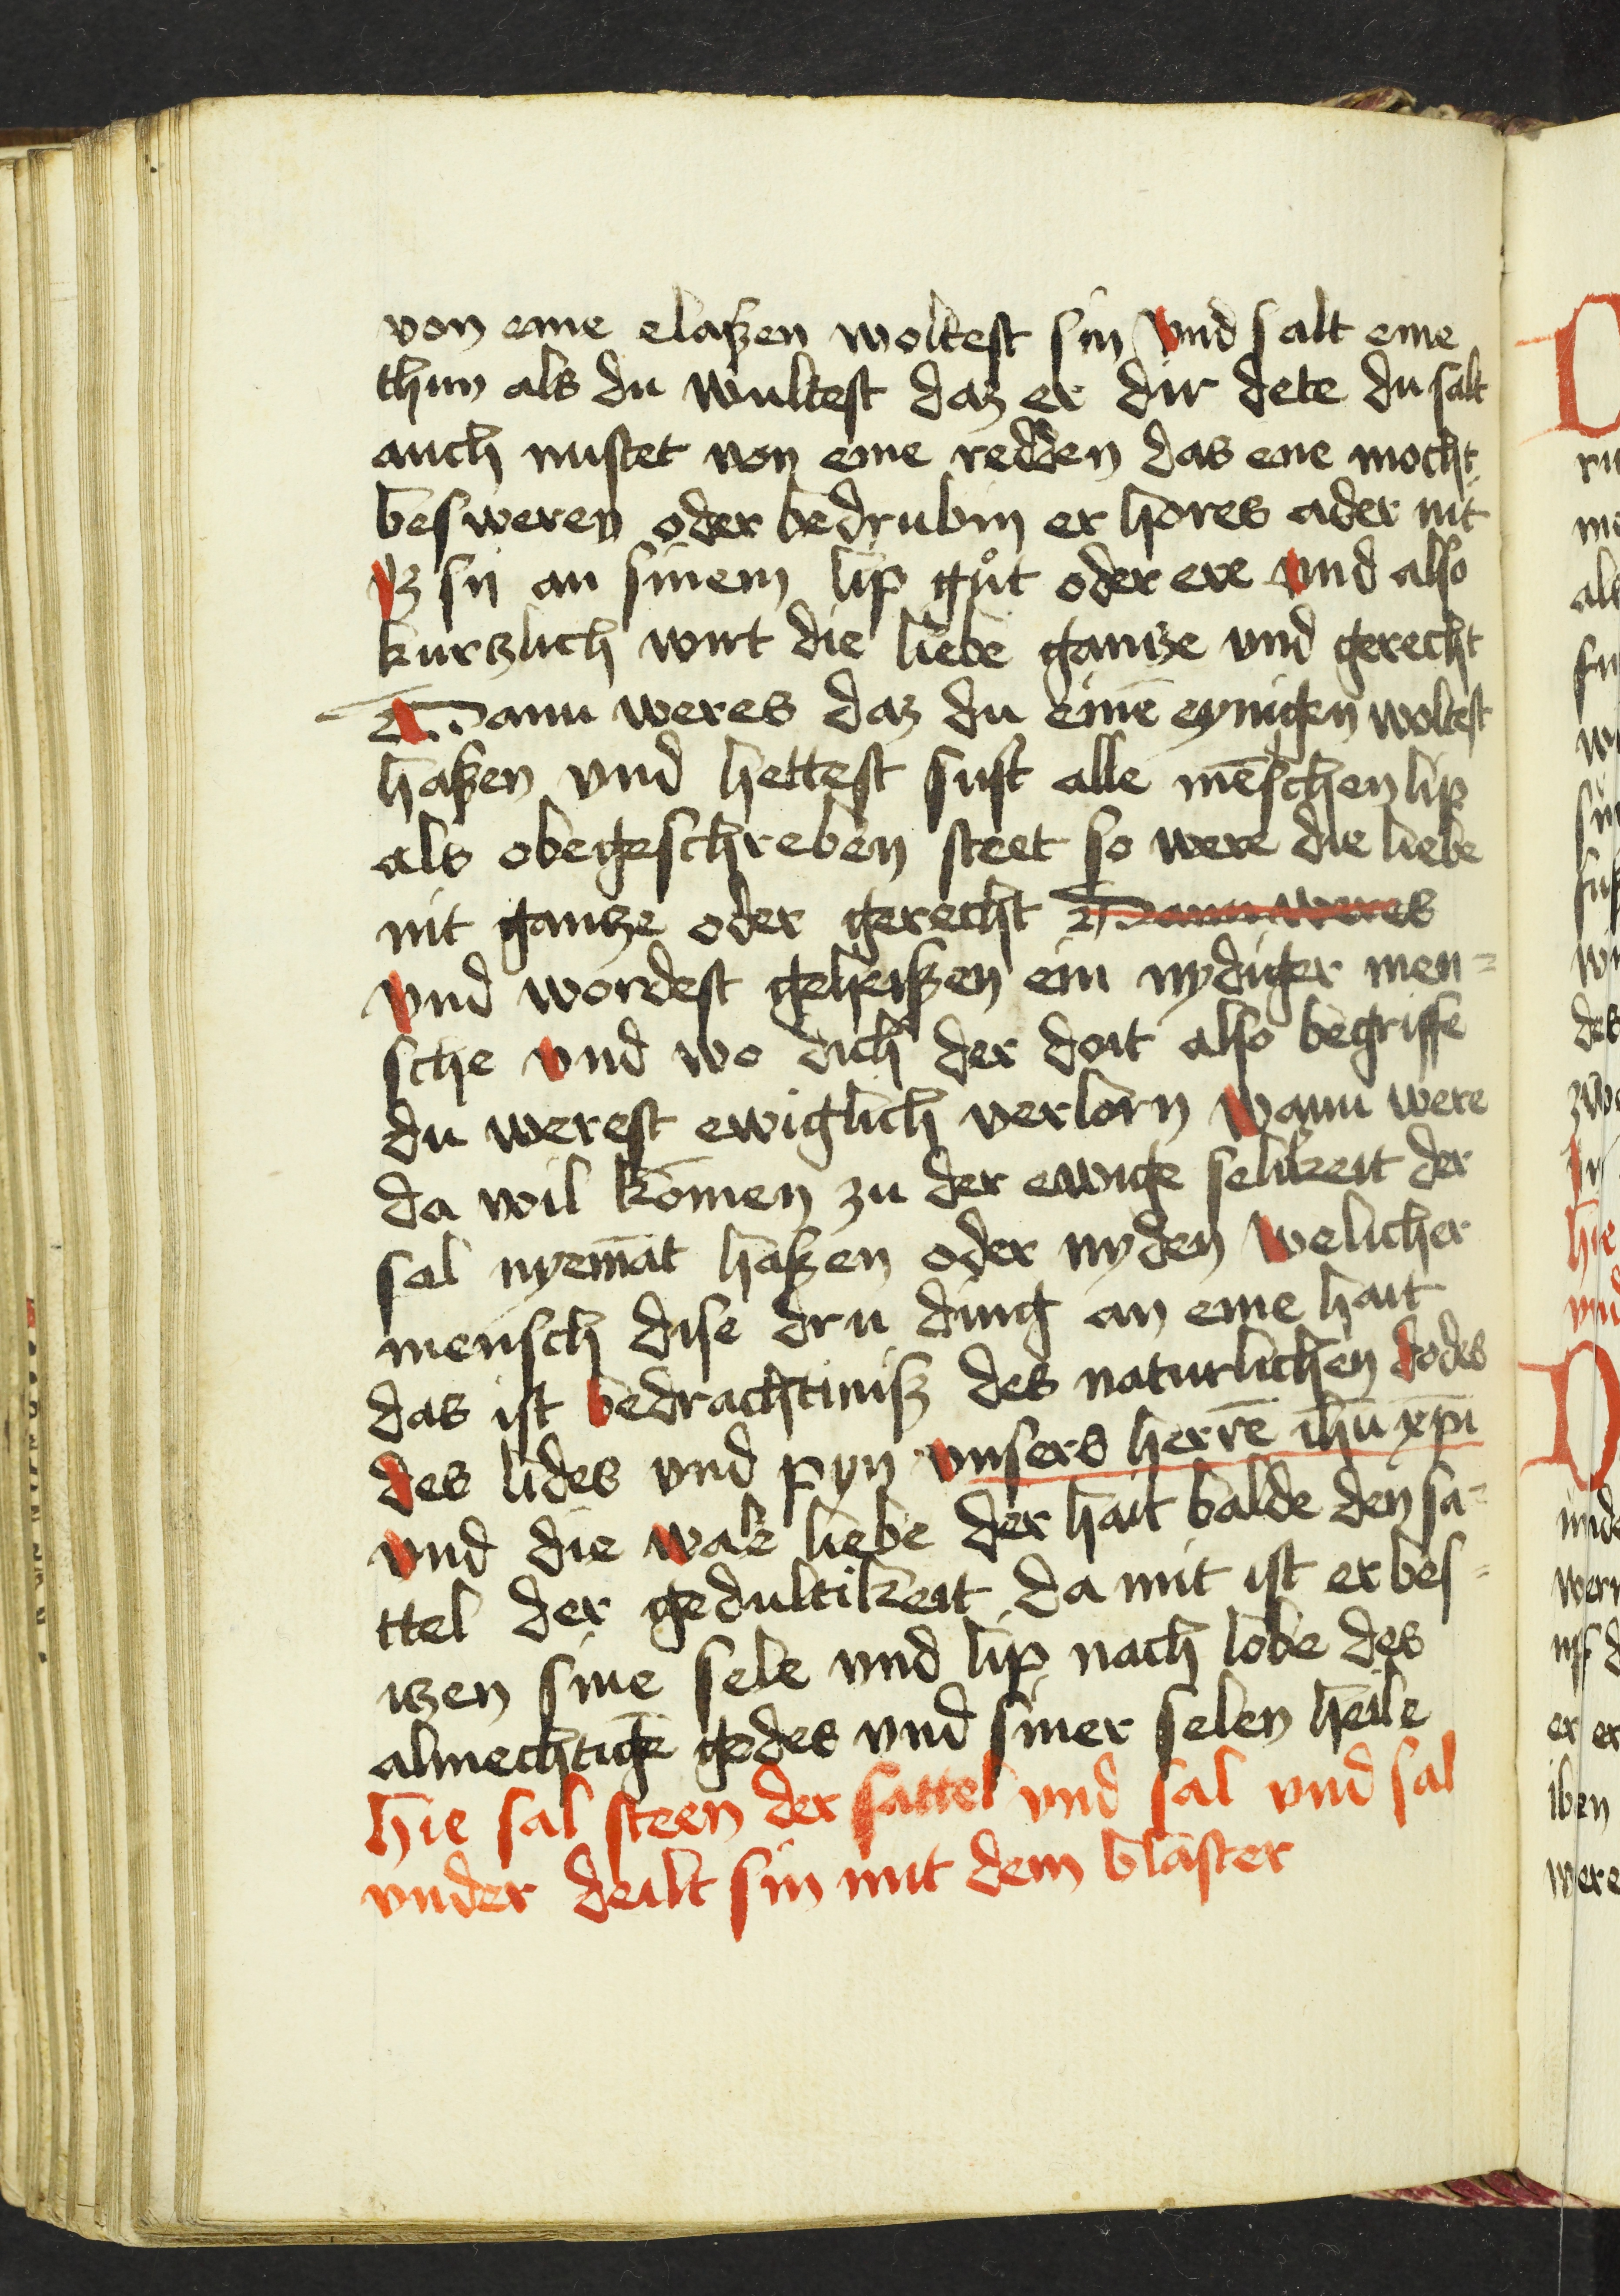 von eme elaßen woltest sin Vnd salt eme
thun als du wultest daz er dir dete du salt
auch nustet von eme redden das ene mocht
besweren oder bedrubin er hores ader nit
Jz sij an sinem lip gůt oder ere Vnd also
kurtzlich wirt die liebe gantze vnd gerecht
Wann weres daz du einē eynigen woltest
haßen vnd hettest sust alle mēschen lip
als obegeschreben steet so were die liebe
nit gantze oder gerecht Wann weres
Vnd wordest geheißen ein nydiger men=
sche Vnd wo dich der doit also begriffe
du werest ewiglich verlorn Wann were
da wil komen zu der ewige selikeit der
sal nyemāt haßen oder nyden Welicher
mensch dise dru ding an eme hait
das ist bedrachtiniß des naturlichen dodes
des lides vnd pyn vnsers herrē ihū xp̄i
Vnd die ware liebe der hait balde den sa=
ttel der gedultikeit da mit ist er bes=
itzen sine sele vnd lip nach lobe des
almechtigē godes vnd siner selen heile
hie sal steen der sattel vnd sal vnd sal
vnder deilt sin mit dem blaster